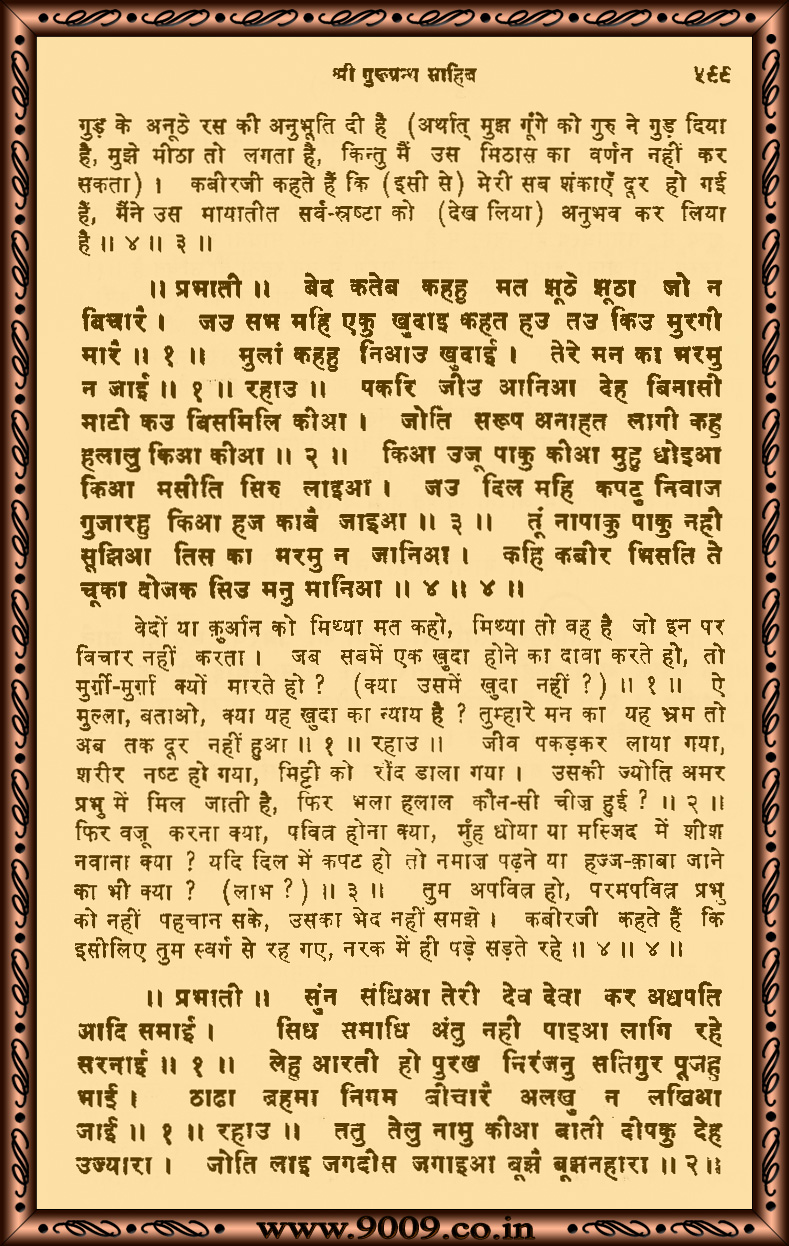 श्री गुरूग्रन्थ साहिब ५९९
गुड़ के अनूठे रस की अनुभूति दी है (अर्थात् मुझ गूँगे को गुरु ने गुड़ दिया
है, मुझे मीठा तो लगता है, किन्तु मैं उस मिठास का वर्णन नहीं कर
सकता) । कबीरजी कहते हैं कि (इसी से) मेरी सब शंकाएँ दूर हो गई
हैं, मैंने उस मायातीत सर्व-स्रष्टा को (देख लिया) अनुभव कर लिया
है ॥ ४ ॥ ३ ॥
॥ प्रभाती ॥ बेद कतेब कहहु मत झूठे झूठा जो न
बिचारै । जउ सभ महि एकु खुदाइ कहत हउ तउ किउ मुरगी
मारै ॥ १ ॥ मुलां कहहु निआउ खुदाई । तेरे मन का भरमु
न जाई ॥ १ ॥ रहाउ ॥ पकरि जीउ आनिआ देह बिनासी
माटी कउ बिसमिलि कीआ । जोति सरूप अनाहत लागी कहु
हलालु किआ कीआ ॥ २ ॥ किआ उजू पाकु कीआ मुहु धोइआ
किआ मसीति सिरु लाइआ । जउ दिल महि कपटु निवाज
गुजारहु किआ हज काबै जाइआ ॥ ३ ॥ तूं नापाकु पाकु नही
सूझिआ तिस का मरमु न जानिआ । कहि कबीर भिसति ते
चूका दोजक सिउ मनु मानिआ ॥ ४ ॥ ४ ॥
वेदों या क़ुर्आन को मिथ्या मत कहो, मिथ्या तो वह है जो इन पर
विचार नहीं करता । जब सबमें एक ख़ुदा होने का दावा करते हो, तो
मुर्ग़ी-मुर्ग़ा क्यों मारते हो ? (क्या उसमें ख़ुदा नहीं ?) ॥ १ ॥ ऐ
मुल्ला, बताओ, क्या यह ख़ुदा का न्याय है ? तुम्हारे मन का यह भ्रम तो
अब तक दूर नहीं हुआ ॥ १ ॥ रहाउ ॥ जीव पकड़कर लाया गया,
शरीर नष्ट हो गया, मिट्टी को रौंद डाला गया । उसकी ज्योति अमर
प्रभु में मिल जाती है, फिर भला हलाल कौन-सी चीज़ हुई ? ॥ २ ॥
फिर वज़ू करना क्या, पवित्र होना क्या, मुँह धोया या मस्जिद में शीश
नवाना क्या ? यदि दिल में कपट हो तो नमाज़ पढ़ने या हज्ज-क़ाबा जाने
का भी क्या ? (लाभ ?) ॥ ३ ॥ तुम अपवित्र हो, परमपवित्र प्रभु
को नहीं पहचान सके, उसका भेद नहीं समझे । कबीरजी कहते हैं कि
इसीलिए तुम स्वर्ग से रह गए, नरक में ही पड़े सड़ते रहे ॥ ४ ॥ ४ ॥
॥ प्रभाती ॥ सुंन संधिआ तेरी देव देवा कर अधपति
आदि समाई । सिध समाधि अंतु नही पाइआ लागि रहे
सरनाई ॥ १ ॥ लेहु आरती हो पुरख निरंजनु सतिगुर पूजहु
भाई । ठाढा ब्रहमा निगम बीचारै अलखु न लखिआ
जाई ॥ १ ॥ रहाउ ॥ ततु तेलु नामु कीआ बाती दीपकु देह
उज्यारा । जोति लाइ जगदीस जगाइआ बूझै बूझनहारा ॥ २ ॥
www.9009.co.in